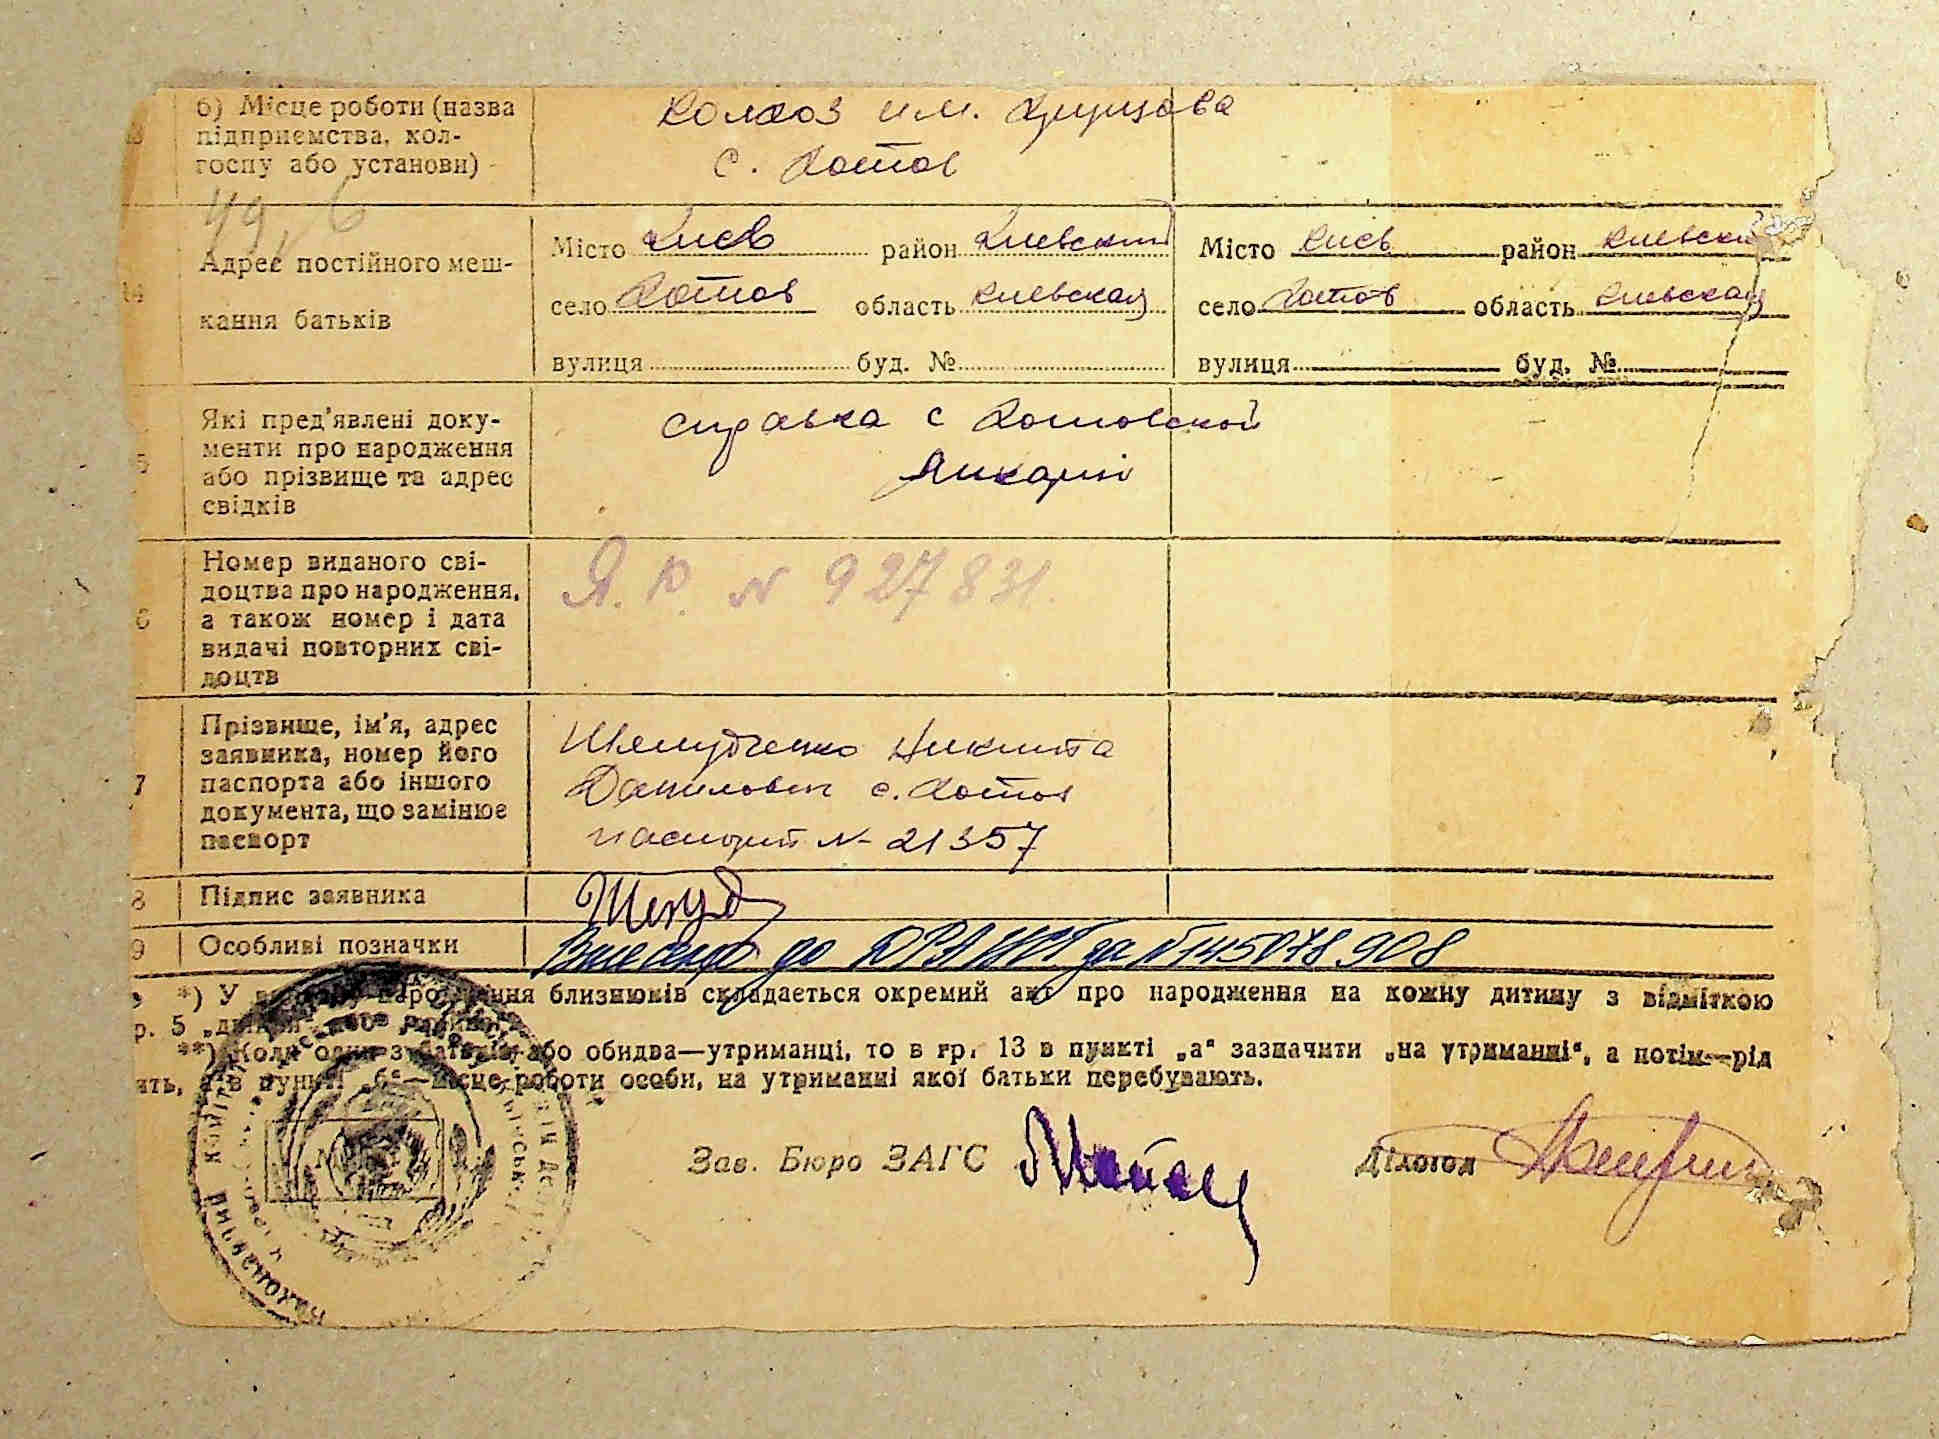 б) Місце роботи (назва підприємства, колгоспу або установи)
колхоз им. Хрущова
с. Хотов
49,6
14
Адрес постійного мешкання батьків
Місто Киев район Киевский
село Хотов область Киевская
вулиця буд. №
Місто Киев район Киевски
село Хотов область Киевская
вулиця буд. №
5
Які пред'явлені документи про народження або прізвище та адрес свідків
справка с Хотовской
Ликарні
6
Номер виданого свідоцтва про народження, а також номер і дата видачі повторних свідоцтв
Я.Ю. N 927831.
7
Прізвище, ім'я, адрес заявника, номер його паспорта або іншого документа, що замінює паспорт
Никита
Данилович с. Хотов
паспорт N- 21357
8
Підпис заявника
9
Особливі позначки
Внесено до ДРАЦСГ за №145078908
*) У народження близнюків складається окремий акт про народження на кожну дитину з відміткою
гр. 5
**) Коли один з батьків або обидва—утриманці, то в гр. 13 в пункті „а“ зазначити „на утриманні“, а потім—рід
ить, а в пункті „б“—місце роботи особи, на утриманні якої батьки перебувають.
Зав. Бюро ЗАГС
Діловод